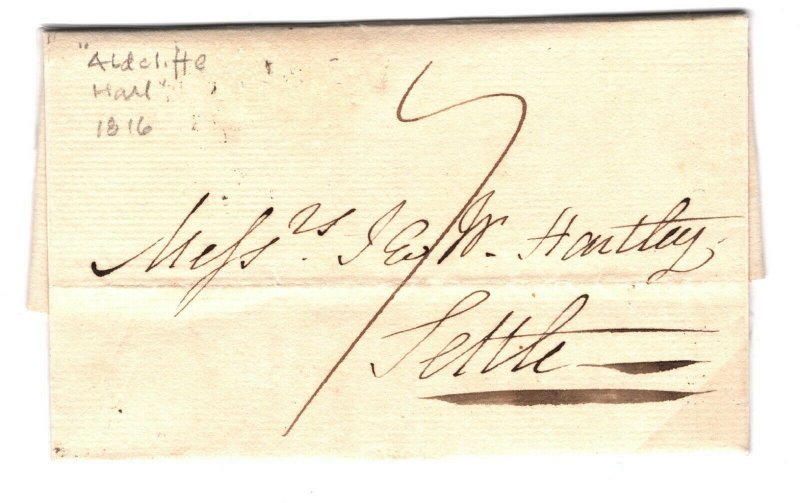 "Aldcliffe
Hall"
1816
7
Messrs. J & W. Hartley,
Settle